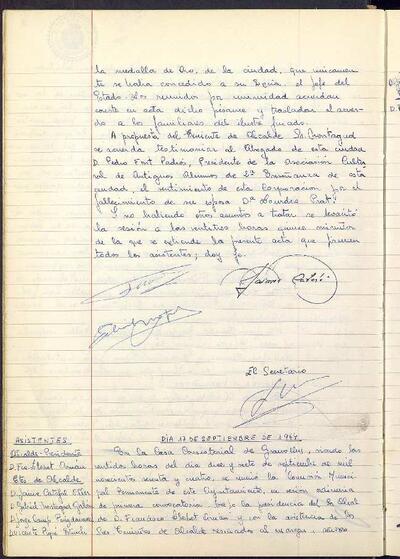 la medalla de Oro, de la ciudad, que unicamen
te se habia concedido a su Excia. el Jefe del
Estado. Los reunidos por unanimidad acuerdan
conste en acta dicho pésame y trasladar el acuer-
do a los familiares del ilustre finado.
A propuesta del Teniente de Alcalde Sr. Montagud
se acuerda testimoniar al Abogado de esta ciudad
D. Pedro Font Padrós, Presidente de la Asociación Cultu
ral de Antiguos Alumnos de 2ª Enseñanza de esta
ciudad, el sentimiento de esta Corporación por el
fallecimiento de su esposa Dª Lourdes Prat.
Y no habiendo otros asuntos a tratar se levantó
la sesión a las veintitres horas quince minutos
de la que se extiende la presente acta que firman
todos los asistentes; doy fe.
El Secretario
ASISTENTES
DIA 17 DE SEPTIEMBRE DE 1964
Alcalde-Presidente
En la Casa Consistorial de Granollers, siendo las
D. Fco. Llobet
veintidos horas del dia diez y siete de septiembre de mil
Ttes. de Alcalde
novecientos sesenta y cuatro, se reunió la Comisión Munici
D. Jaime
pal Permanente de este Ayuntamiento, en sesión ordinaria
D. Gabriel
de primera convocatoria, bajo la presidencia del Sr. Alcal
D. Jorge Camp
de D. Francisco Llobet y con la asistencia de los
D. Vicente
Sres. Tenientes de Alcalde reseñados al margen,